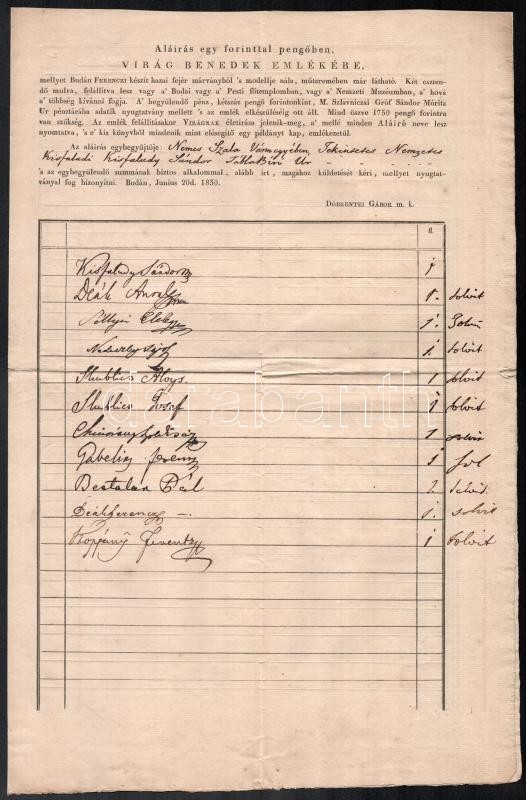 Aláirás egy forinttal pengőben,
VIRÁG BENEDEK EMLÉKÉRE,
mellyet Budán FERENCZI készít hazai fejér márványból 's modellje nála, műteremében már látható. Két eszten-
dő mulva, felállítva lesz vagy a' Budai vagy a' Pesti főtemplomban, vagy a' Nemzeti Muzéumban, a' hová
a' többség kívánni fogja. A' begyülendő pénz, kétszáz pengő forintonkint, M. Szlavniczai Gróf Sándor Móricz
Ur pénztárába adatik nyugtatvány mellett 's az emlék elkészüléséig ott áll. Mind öszve 1750 pengő forintra
van szükség. Az emlék felállításakor VIRÁGNAK életirása jelenik-meg, a' mellé minden Aláiró neve lesz
nyomtatva, 's e' kis könyvből mindenik mint elősegítő egy példányt kap, emlékezetűl.
Az aláirás egybegyűjtője: Nemes Szala Vármegyében, Tekintetes Nemzetes
Kisfaludi Kisfaludy Sándor Táblabíró Ur
's az egybegyülendő summának biztos alkalommal, alább írt, magához küldetését kéri, mellyet nyugtat-
ványal fog bizonyítni. Budán, Junius 20d. 1830.
DÖBRENTEI GÁBOR m. k.
fl.
Kisfaludy Sándor 1
Deák Antal 1. solvit
1.
1. solvit
Skublics Aloys 1 solvit
Skublics Josef 1 solvit
1 solvit
Gabelics 1 sol
Bertalan Pál 2. solvit
Deák Ferencz 1. solvit
Koppány Ferentz 1 solvit
darabanth